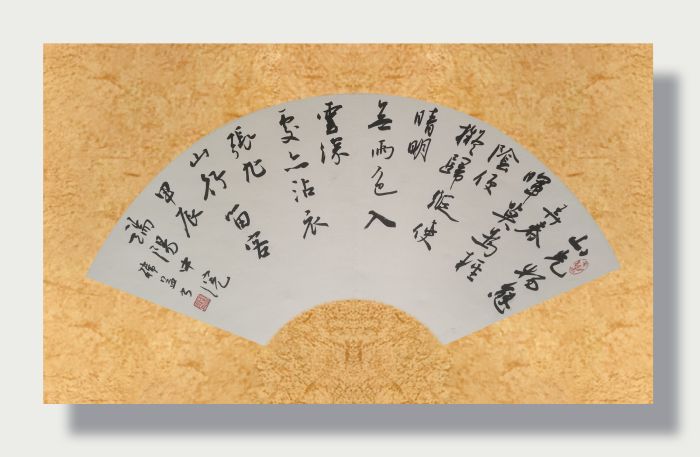 山光物態
弄春
暉莫為輕
陰便
擬歸縱使
晴明
無雨色入
雲深
處亦沾衣
張旭
山行留客
甲辰
端陽